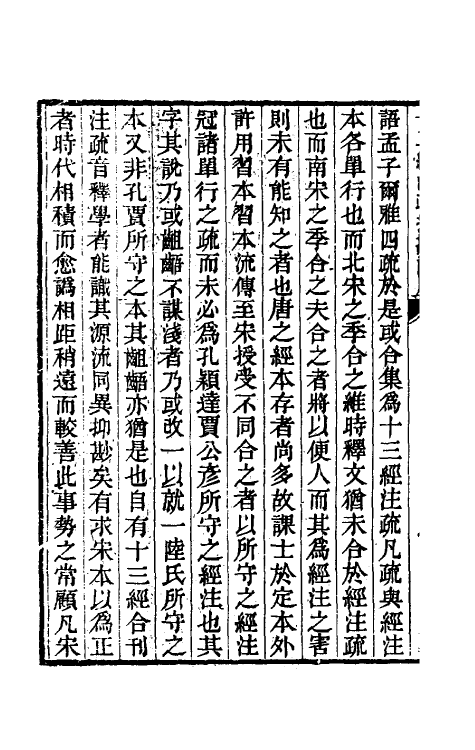 語孟子爾雅四疏於是或合集爲十三經注疏凡疏與經注
本各單行也而北宋之季合之維時釋文猶未合於經注疏
也而南宋之季合之夫合之者將以便人而其爲經注之害
則未有能知之者也唐之經本存者尚多故課士於定本外
許用習本習本流傳至宋授受不同合之者以所守之經注
冠諸單行之疏而未必爲孔穎達賈公彥所守之經注也其
字其說乃或齟齬不謀淺者乃或改一以就一陸氏所守之
本又非孔賈所守之本其齟齬亦猶是也自有十三經合刊
注疏音釋學者能識其源流同異抑尠矣有求宋本以爲正
者時代相積而愈譌相距稍遠而較善此事勢之常顧凡宋